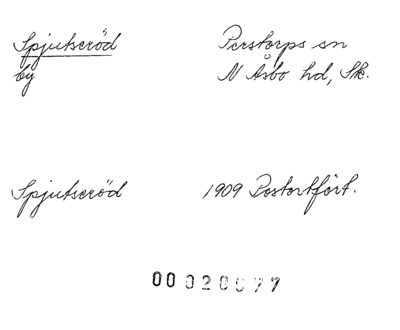 Spjutseröd Perstorps sn
by N Åsbo hd, Sk.
Spjutseröd 1909 Postortsfört.